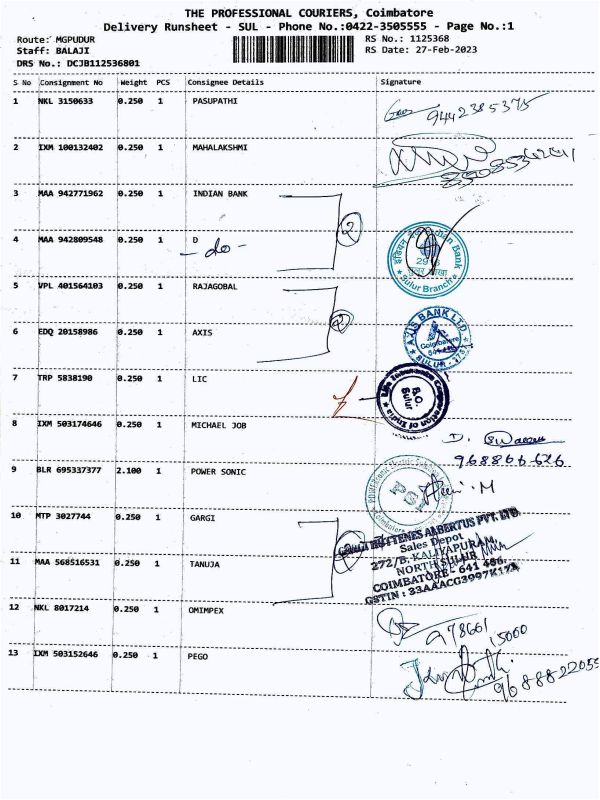 THE PROFESSIONAL COURIERS, Coimbatore
Delivery Runsheet - SUL - Phone No.:0422-3505555 - Page No.:1
Route: MGPUDUR
RS No.: 1125368
Staff: BALAJI
RS Date: 27-Feb-2023
DRS No.: DCJB112536801
S No Consignment No Weight PCS Consignee Details Signature
1 NKL 3150633 0.250 1 PASUPATHI
9442385375
2 IXM 100132402 0.250 1 MAHALAKSHMI
3 MAA 942771962 0.250 1 INDIAN BANK
2
4 MAA 942809548 0.250 1 D
- do -
इंडियन Indian Bank
Sulur Branch
5 VPL 401564103 0.250 1 RAJAGOBAL
2
6 EDQ 20158986 0.250 1 AXIS
AXIS BANK LTD.
Coimbatore
SULUR
7 TRP 5838190 0.250 1 LIC
Life Insurance Corporation of India
B.O.
Sulur
8 IXM 503174646 0.250 1 MICHAEL JOB
D.
968866626
9 BLR 695337377 2.100 1 POWER SONIC
PSI
10 MTP 3027744 0.250 1 GARGI
GARGI HUTTENES ALBERTUS PVT. LTD.
Sales Depot
272/B. KALIYAPURAM,
NORTH SULUR
COIMBATORE - 641 486.
GSTIN : 33AAACG3997K1ZA
11 MAA 568516531 0.250 1 TANUJA
12 NKL 8017214 0.250 1 OMIMPEX
9786615000
13 IXM 503152646 0.250 1 PEGO
9688822055